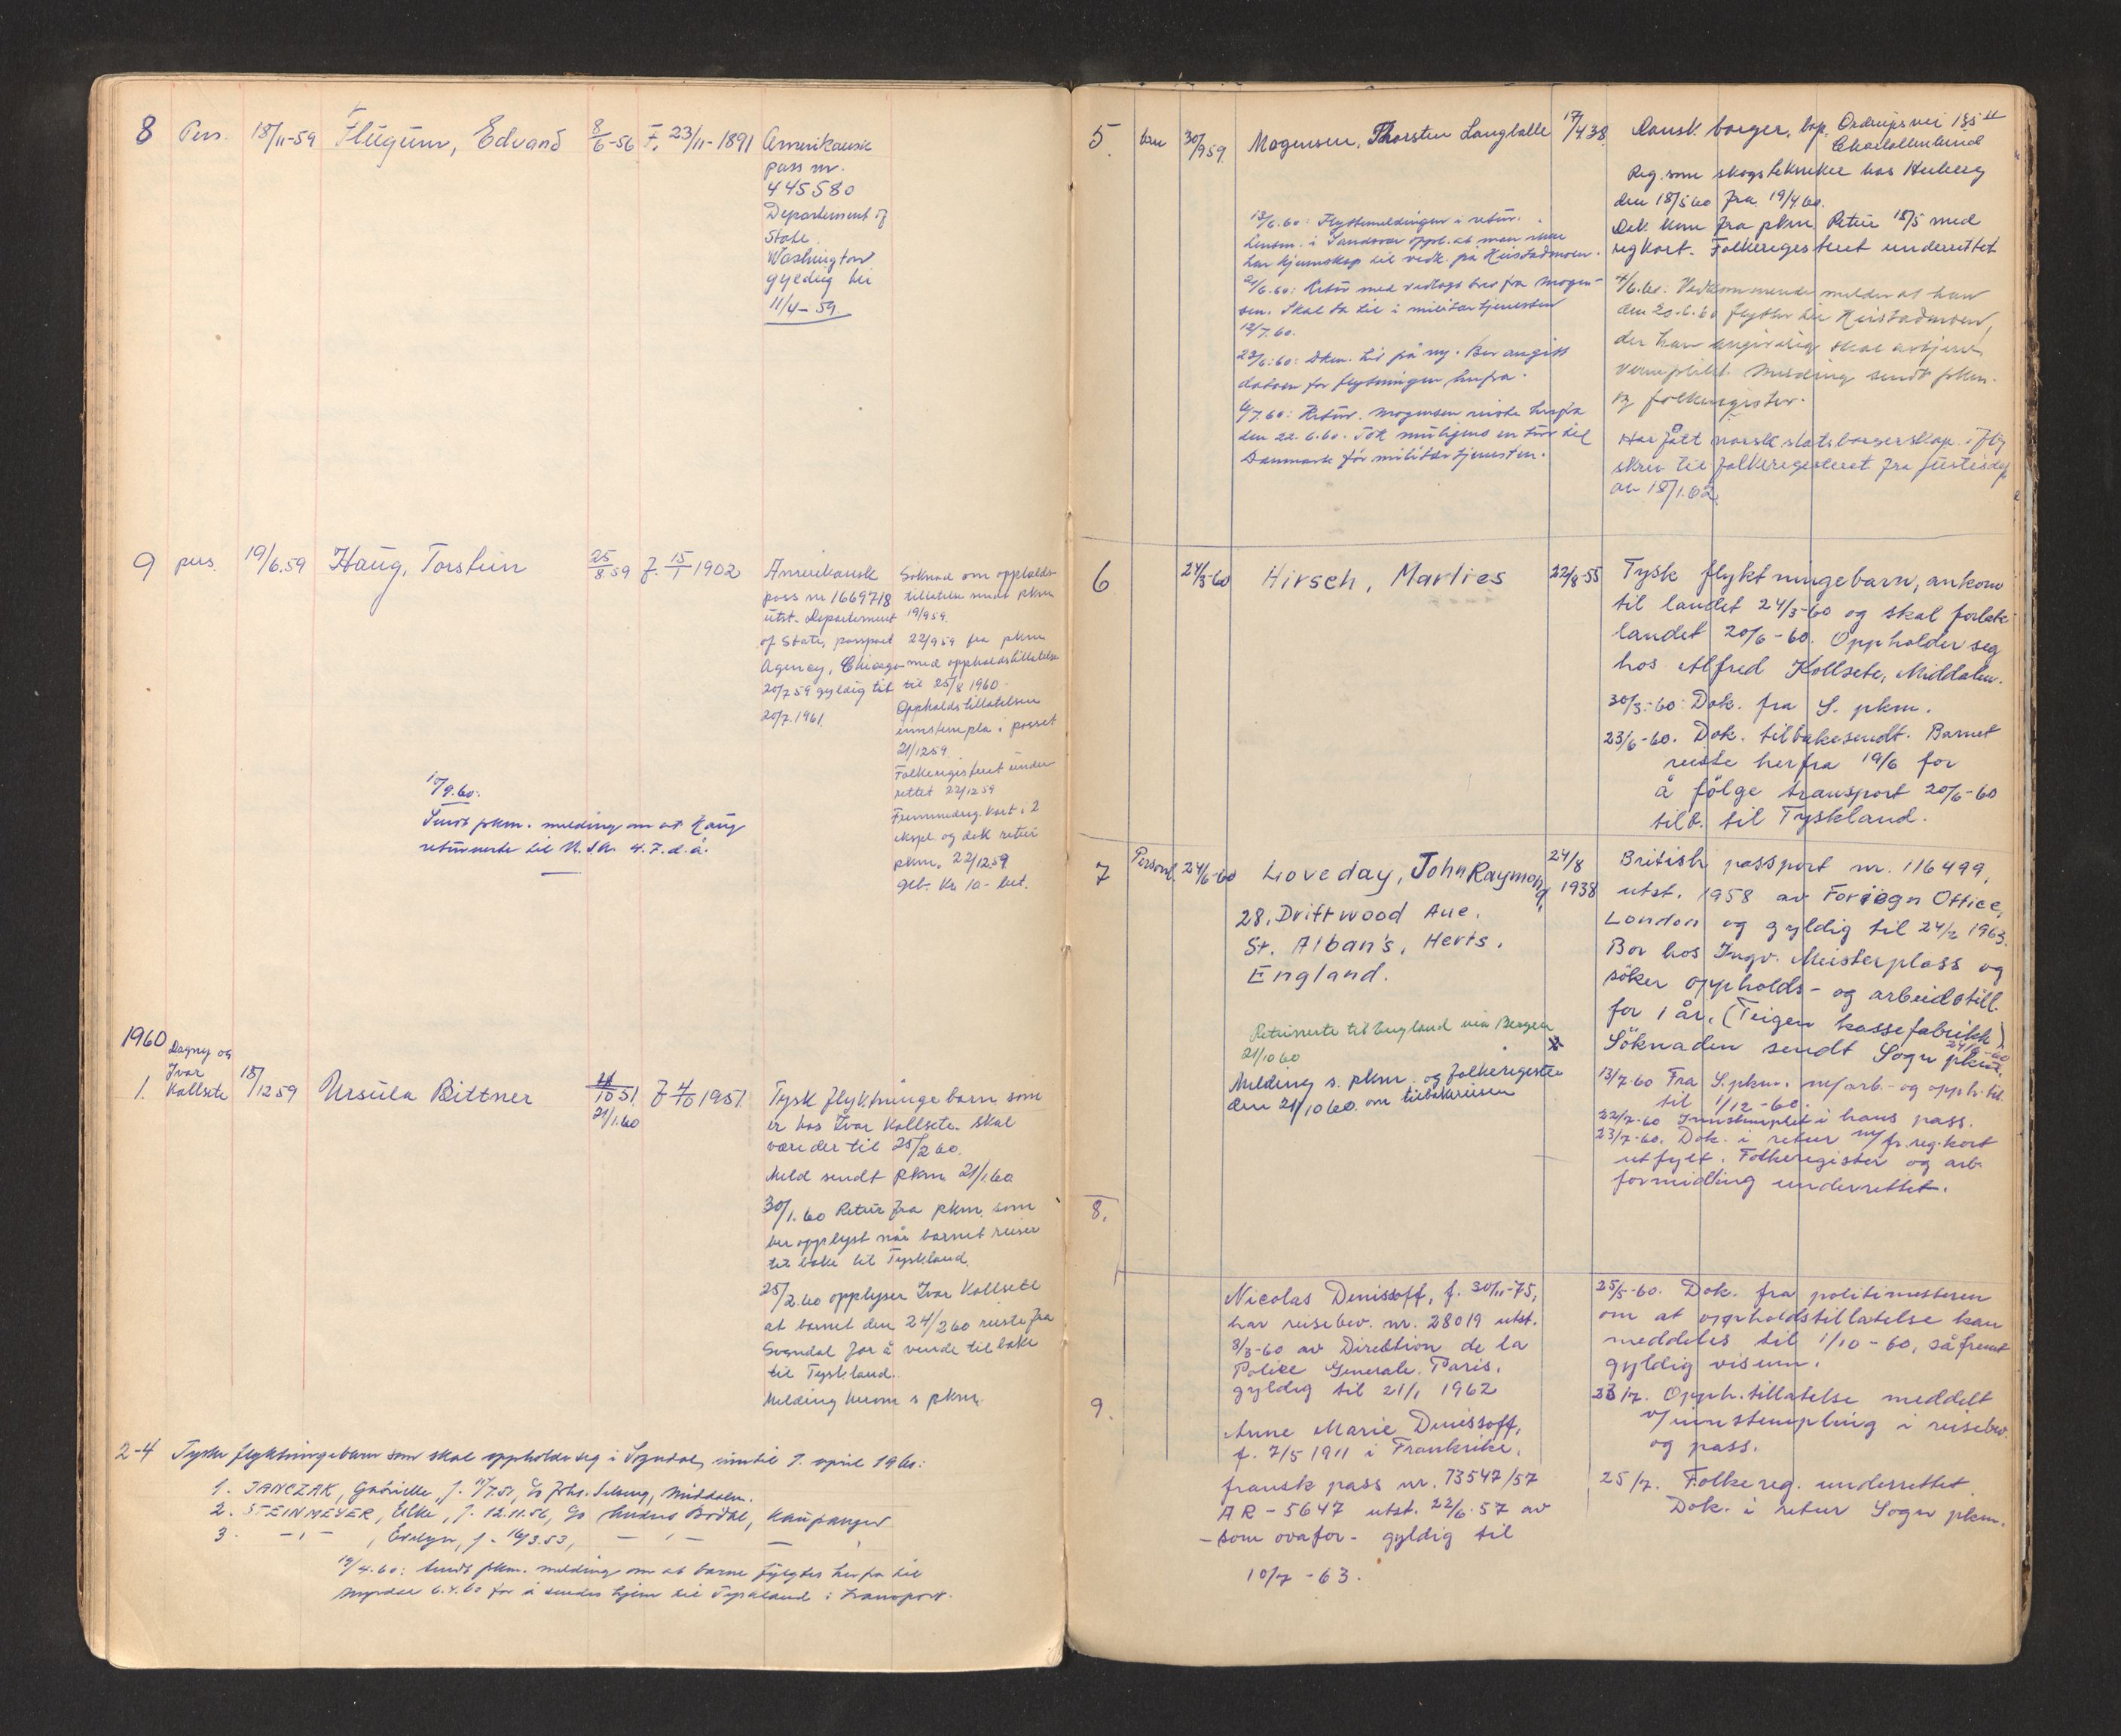 8 Pers. 18/11-59 Flugum, Edvard 8/6-56 F. 23/11-1891 Amerikansk
pass nr.
445580
Departement of
State
Washington
gyldig til
11/4-59
9 pers. 19/6.59 Haug, Torstein 25/8 59 f. 15/1 1902
Amerikansk
pass nr 1669718
utst. Departement
of State, passport
Agency, Chicago
20/7 59 gyldig til
20/7.1961.
Söknad om oppholds-
tillatelse sendt pkm
19/9 59.
22/9 59 fra pkm
med oppholdstillatelse
til 25/8 1960 -
Oppholdstillatelsen
innstempla i passet
21/12 59.
Folkeregisteret under-
rettet 22/12 59
Fremmedreg. kort i 2
ekspl. og dok retur
pkm. 22/12 59
geb. Kr 10 - bet.
10/9.60:
Sendt pkm. melding om at Haug
returnerte til U.S.A. 4.7.d.å.
1960
1. Dagny og
Ivar
Kollsete 18/12 59 Ursula Bittner 4/10 51. 21/1.60 F 4/10 1951.
Tysk flyktninge barn som
er hos Ivar Kollsete. Skal
være der til 25/2 60.
Meld sendt pkm 21/1.60
30/1.60 Retur fra pkm. som
ber opplyst når barnet reiser
tilbake til Tyskland.
25/2.60 opplyser Ivar Kollsete
at barnet den 24/2 60 reiste fra
Sogndal for å vende tilbake
til Tyskland.
Melding herom s pkm.
2-4 Tyske flyktningebarn som skal oppholde seg i Sogndal inntil 7. april 1960:
1. JANCZAK, Gabrielle, f. 11/7.51, c/o Johs. Selseng, Middalen.
2. STEINMEYER, Eilke, f. 12.11.56, c/o Anders Bødal, Kaupanger
3. -"-, Evelyn, f. 16/3.53, -"-
19/4.60: Sendt pkm. melding om at barna fylgtes herfra til
Myrdal 6.4.60 for å sendes hjem til Tyskland i transport.
5. brev 30/9 59 Mogensen, Thorsten Langballe 17/4 38. Dansk borger, bop. Ordrupsvei 135 II
Charlottenlund
Reg. som skogstekniker hos Heiberg
den 18/5 60 fra 19/4 60.
Dok. kom fra pkm. Retur 18/5 med
regkort. Folkeregisteret underrettet
4/6.60: Vedkommende melder at han
den 20.6.60 flytter til Heistadmoen,
der han angivelig skal avtjene
verneplikt. Melding sendt pkm.
og folkeregister.
Har fått norsk statsborgerskap i flg
skriv til folkeregisteret fra justisdep
av 18/1.62.
13/6.60: Flyttemeldingen i retur.
Lensm. i Sandsvær oppl. at man ikke
har kjennskap til vedk. på Heistadmoen.
21/6.60: Retur med vedlagt brev fra Mogen-
sen. Skal ta til i militærtjenesten
12/7.60.
28/6.60: Dkm. hit på ny. Ber angitt
datoen for flytningen herfra.
6/7.60: Retur. Mogensen reiste herfra
den 22.6.60. Tok muligens en tur til
Danmark før militærtjenesten.
6 24/3-60 Hirsch, Marlies 22/8-55 Tysk flyktningebarn, ankom
til landet 24/3-60 og skal forlate
landet 20/6-60. Oppholder seg
hos Alfred Kollsete, Middalen.
30/3-60: Dok. fra S. pkm.
23/6-60. Dok. tilbakesendt. Barnet
reiste herfra 19/6 for
å fölge transport 20/6-60
tilb. til Tyskland.
7 Personl. 24/6-60 Loveday, John Raymond, 24/8 1938
28, Driftwood Ave.
St. Alban's, Herts.
England.
British passport nr. 116499,
utst. 1958 av Foreign Office,
London og gyldig til 24/2 1963.
Bor hos Ingv. Meisterplass og
söker oppholds- og arbeidstill.
for 1 år. (Teigen kassefabrikk)
Söknaden sendt Sogn pkm. 24/6-60
13/7-60 Fra S. pkm. m/arb.- og opph.til.
til 1/12-60.
22/7-60 Innstemplet i hans pass.
23/7-60. Dok. i retur m/fr.reg.kort
utfylt. Folkeregister og arb.
formidling underrettet.
Returnerte til England via Bergen
21/10 60
Melding s. pkm og folkeregister
den 21/10 60. om tilbakereisen
8.
Nicolas Denissoff, f. 30/11-75,
har reisebev. nr. 28019 utst.
8/3-60 av Direction de la
Police Generale, Paris.
gyldig til 21/1 1962
25/5-60. Dok. fra politimesteren
om at oppholdstillatelse kan
meddeles til 1/10-60, såfremt
gyldig visum.
23/7. Opph.tillatelse meddelt
v/innstempling i reisebev.
og pass.
25/7. Folkereg. underrettet
Dok. i retur Sogn pkm.
9.
Anne Marie Denissoff,
f. 7/5 1911 i Frankrike,
fransk pass nr. 73547/57
AR - 5647 utst. 22/6-57 av
- som ovafor - gyldig til
10/7-63.